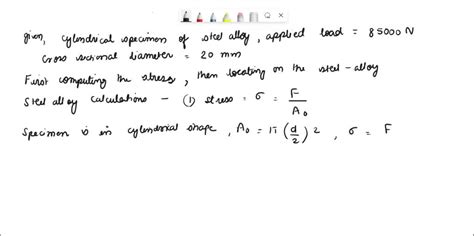 given, cylindrical specimen of steel alloy, applied load = 85000 N
cross sectional diameter = 20 mm
First computing the stress, then locating on the steel-alloy
Steel alloy calculations - (1) stress = σ = F/A₀
Specimen is in cylindrical shape, A₀ = π (d/2) 2, σ = F